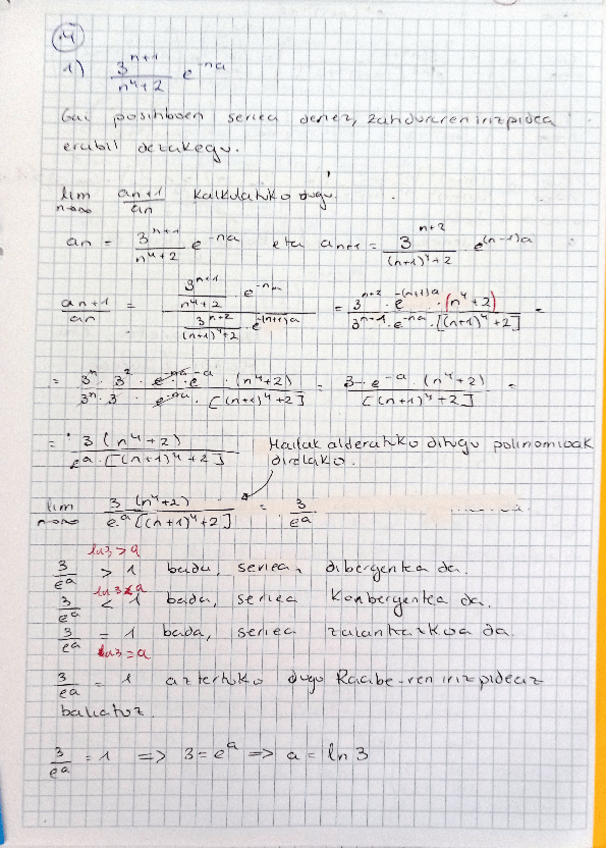 .4
1) 3^{n+1}/(n^4+2) e^{-na}
Gai positiboen seriea denez, zatiduraren irizpidea
erabil dezakegu.
lim_{n→∞} a_{n+1}/a_n kalkulatuko dugu.
a_n = 3^{n+1}/(n^4+2) e^{-na} eta a_{n+1} = 3^{n+2}/((n+1)^4+2) · e^{(n-1)a}
a_{n+1}/a_n = (3^{n+1}/(n^4+2) · e^{-na})/(3^{n+2}/((n+1)^4+2) · e^{-(n+1)a}) = (3^{n+2} · e^{-(n+1)a} · (n^4+2))/(3^{n+1} · e^{-na} · [(n+1)^4+2]) =
= (3^n · 3^2 · e^{-na} · e^{-a} · (n^4+2))/(3^n · 3 · e^{-na} · [(n+1)^4+2]) = (3 · e^{-a} · (n^4+2))/([(n+1)^4+2]) =
= 3(n^4+2)/(e^a · [(n+1)^4+2]) Mailak alderatuko ditugu polinomioak
direlako.
lim_{n→∞} 3(n^4+2)/(e^a[(n+1)^4+2]) = 3/e^a
ln3 > a
3/e^a > 1 bada, seriea, dibergentea da.
ln3 < a
3/e^a < 1 bada, seriea konbergentea da.
3/e^a = 1 bada, seriea zalantzazkoa da.
ln3 = a
3/e^a = 1 aztertuko dugu Raabe-ren irizpideaz
baliatuz.
3/e^a = 1 => 3 = e^a => a = ln 3